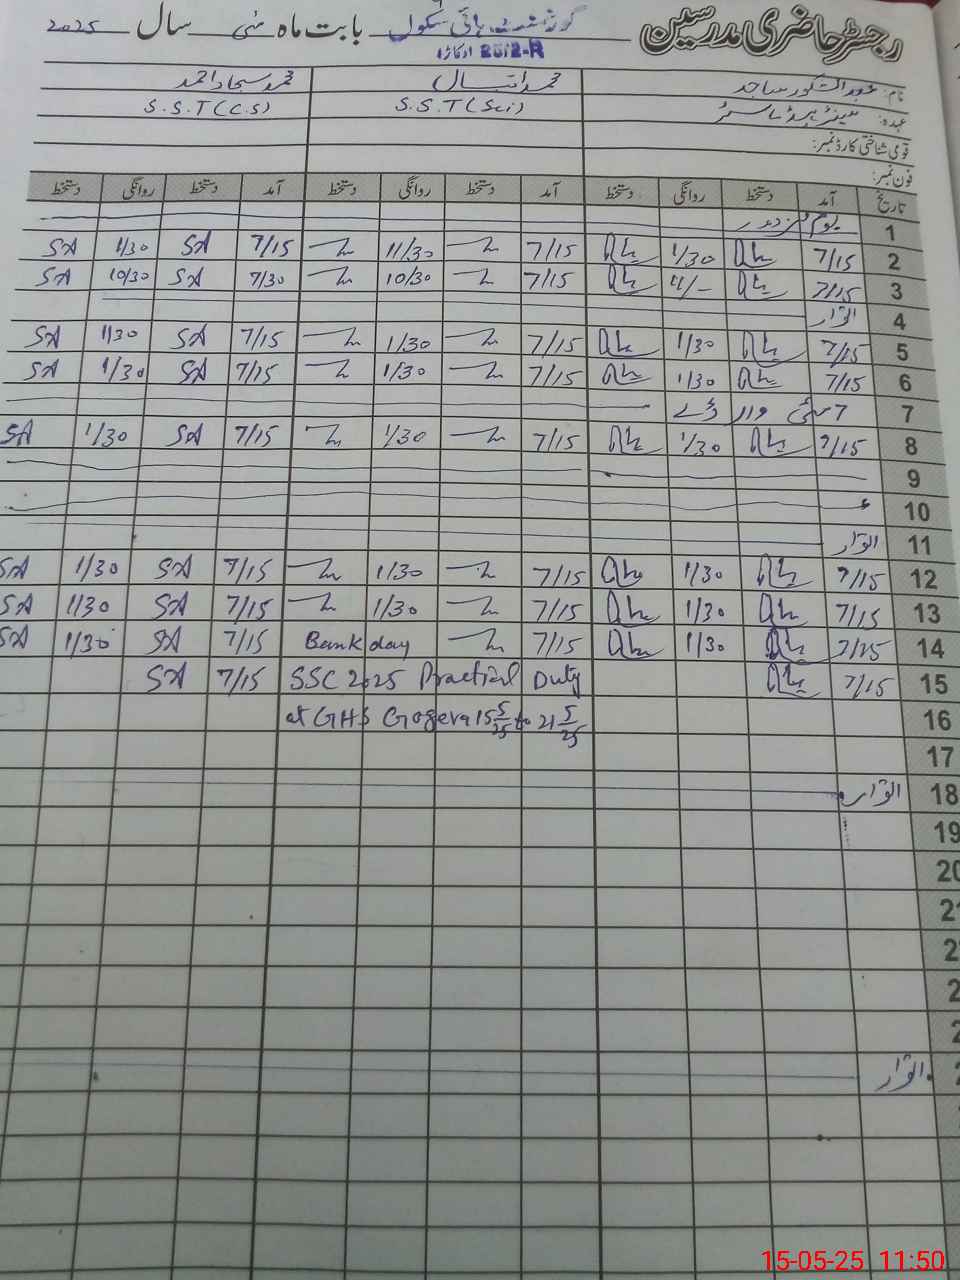 رجسٹر حاضری مدرسین گورنمنٹ ہائی سکول بابت ماہ مئی سال 2025
اوکاڑہ
نام: عبدالشکور ساجد محمد اقبال محمد سجاد احمد
عہدہ: سینئر ہیڈ ماسٹر S.S.T (Sci) S.S.T (C.S)
قومی شناختی کارڈ نمبر:
فون نمبر:
تاریخ آمد دستخط روانگی دستخط آمد دستخط روانگی دستخط آمد دستخط روانگی دستخط
1 یوم مزدور
2 7/15 1/30 7/15 11/30 7/15 SA 1/30 SA
3 7/15 7/15 10/30 7/30 SA 10/30 SA
4 اتوار
5 7/15 1/30 7/15 1/30 7/15 SA 1/30 SA
6 7/15 1/30 7/15 1/30 7/15 SA 1/30 SA
7
8 7/15 1/30 7/15 1/30 7/15 SA 1/30 SA
9
10
11 اتوار
12 7/15 1/30 7/15 1/30 7/15 SA 1/30 SA
13 7/15 1/30 7/15 1/30 7/15 SA 1/30 SA
14 7/15 1/30 7/15 Bank day 7/15 SA 1/30 SA
15 7/15 SSC 2025 Practical Duty 7/15 SA
16 at GHS Gogera 15 5/25 to 21 5/25
17
18 اتوار
19
20
اتوار
15-05-25 11:50